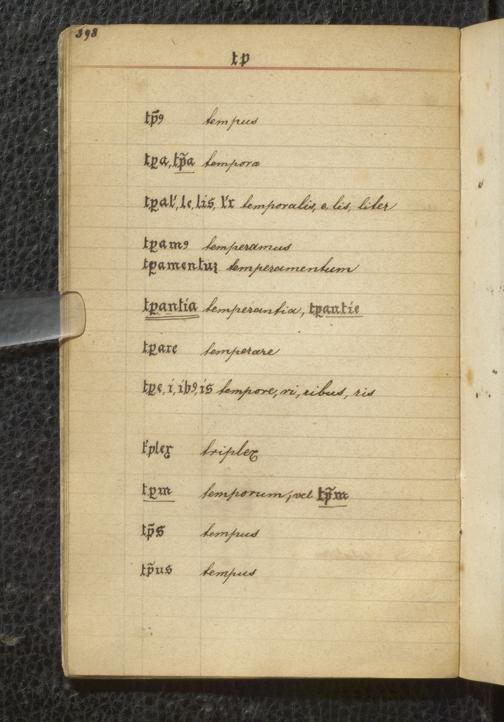 398
tp
tp̃9 tempus
tꝑa, tp̃a tempora
tꝑal', le, lis, l'r temporalis, e, lis, liter
tꝑam9 temperamus
tꝑamentuꝫ temperamentum
tꝑantia temperantia, tꝑantie
tꝑare temperare
tꝑe, i, ib9, is tempore, ri, ribus, ris
t'plex triplex
tꝑm temporum, vel tp̃m
tp̃s tempus
tp̃us tempus